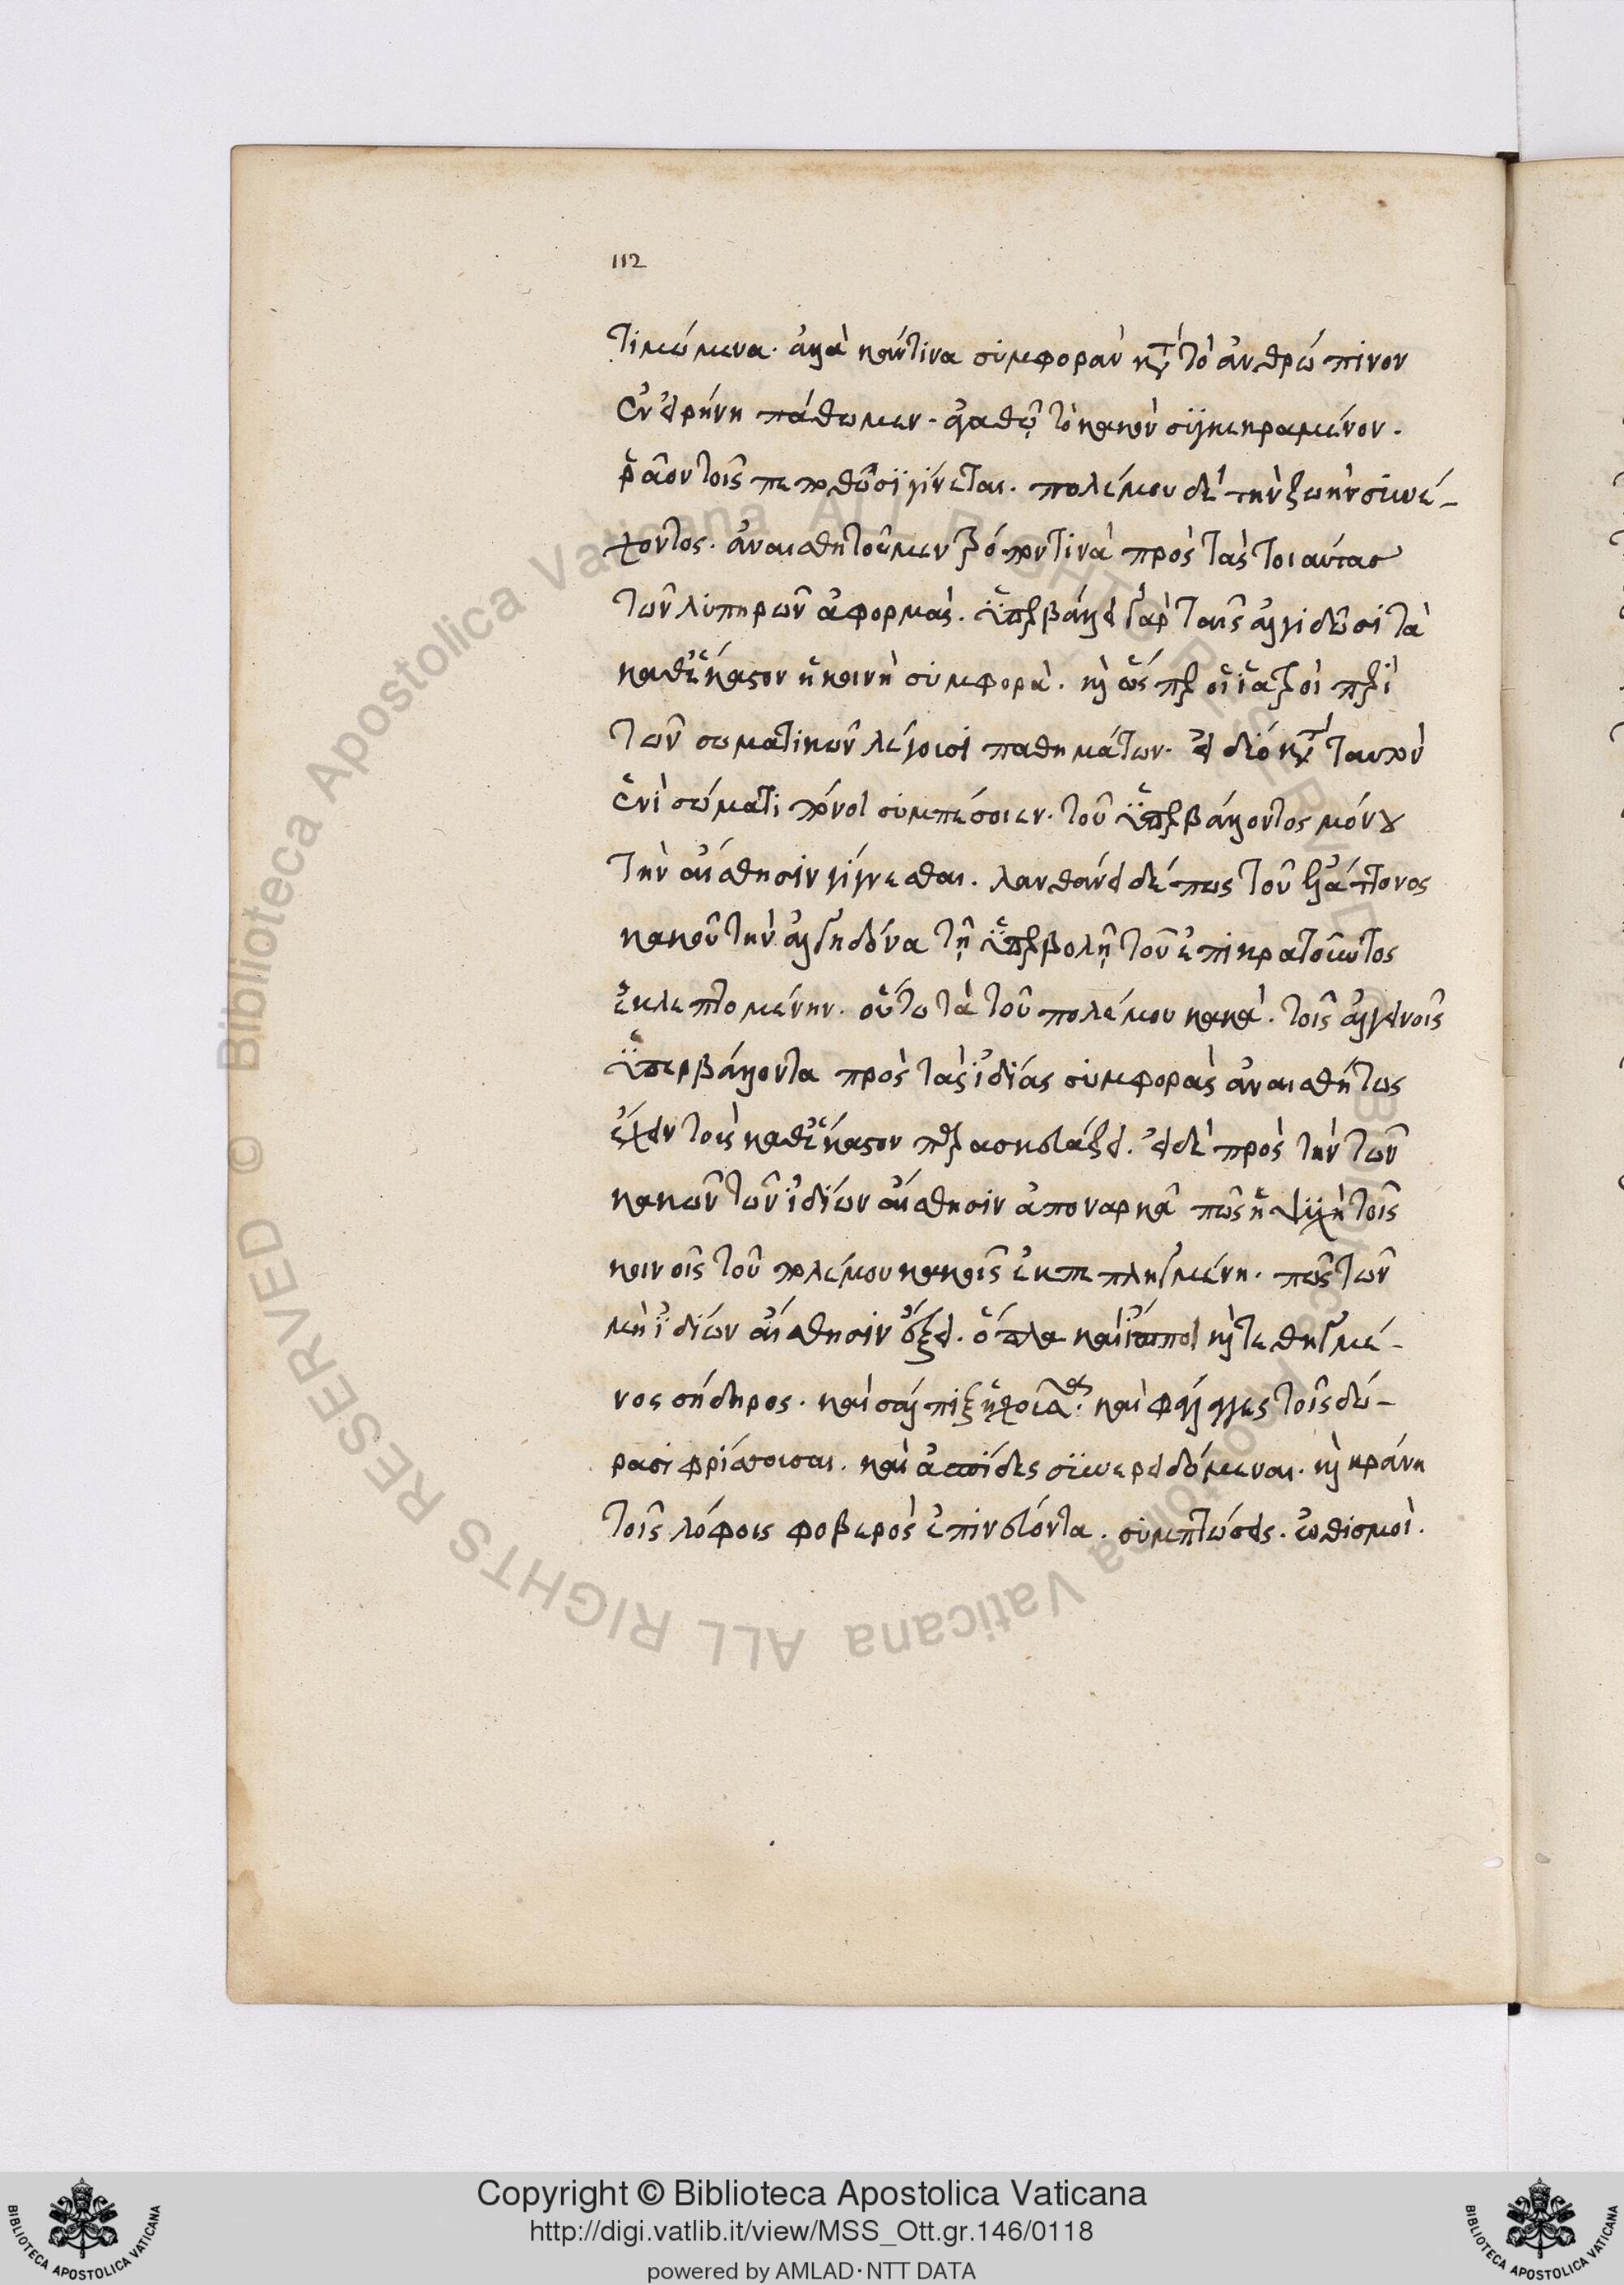 112
τιμώμενα. ἀλλὰ κἄν τινα συμφορὰν κατὰ τὸ ἀνθρώπινον
ἐν εἰρήνη πάθωμεν. ἀγαθῷ τὸ κακὸν συγκεκραμένον.
ῥᾷον τοῖς πεπονθῶσι γίνεται. πολέμου δὲ τὴν ζωὴν συνέ-
χοντος. ἀναισθητοῦμεν τρόπον τινὰ πρὸς τὰς τοιαύτας
τῶν λυπηρῶν ἀφορμάς. ὑπερβάλλει γὰρ ταῖς ἀλγιδῶσι τὰ
καθ' ἕκαστον ἡ κοινὴ συμφορά. καὶ ὥσπερ οἱ ἰατροὶ περὶ
τῶν σωματικῶν λέγουσι παθημάτων. εἰ δύο κατὰ ταυτὸν
ἑνὶ σώματι πόνοι συμπέσοιεν. τοῦ ὑπερβάλλοντος μόνου
τὴν αἴσθησιν γίγνεσθαι. λανθάνει δέ πως τοῦ ἐλάττονος
κακοῦ τὴν ἀλγηδόνα τῇ ὑπερβολῇ τοῦ ἐπικρατοῦντος
ἐκλεπτομένην. οὕτω τὰ τοῦ πολέμου κακὰ. τοῖς ἀλγεινοῖς
ὑπερβάλλοντα πρὸς τὰς ἰδίας συμφορὰς ἀναισθήτως
ἔχειν τοῖς καθ' ἕκαστον παρασκευάζει. εἰ δὲ πρὸς τὴν τῶν
κακῶν τῶν ἰδίων αἴσθησιν ἀποναρκᾶ πῶς ἡ ψυχὴ τοῖς
κοινοῖς τοῦ πολέμου κακοῖς ἐκπεπληγμένη. πῶς τῶν
μὴ ἰδίων αἴσθησιν ἕξει. ὅπλα καὶ ἵπποι καὶ τεθηγμέ-
νος σήδηρος. καὶ σάλπιξ ἠχοῦσα. καὶ φάλαγγες τοῖς δό-
ρασι φρίσσουσαι. καὶ ἀσπίδες συνερειδόμεναι. καὶ κράνη
τοῖς λόφοις φοβερὸς ἐπινεύοντα. συμπτώσεις. ὠθισμοί.
Copyright © Biblioteca Apostolica Vaticana
http://digi.vatlib.it/view/MSS_Ott.gr.146/0118
powered by AMLAD·NTT DATA